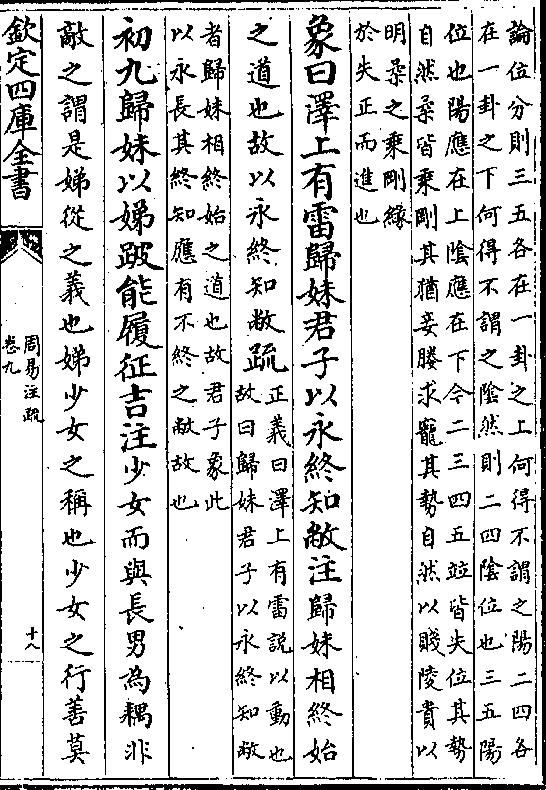 論位分則三五各在一卦之上何得不謂之陽二四各
在一卦之下何得不謂之陰然則二四陰位也三五陽
位也陽應在上陰應在下今二三四五竝皆失位其勢
自然柔皆乘剛其猶妾媵求寵其勢自然以賤陵貴以
明柔之乘剛緣
於失正而進也
象曰澤上有雷歸妹君子以永終知敝注歸妹相終始
之道也故以永終知敝疏
正義曰澤上有雷說以動也
故曰歸妹君子以永終知敝
者歸妹相終始之道也故君子象此
以永長其終知應有不終之敝故也
初九歸妹以娣跛能履征吉注少女而與長男為耦非
敵之謂是娣從之義也娣少女之稱也少女之行善莫
欽定四庫全書
周易注疏
卷九
十八